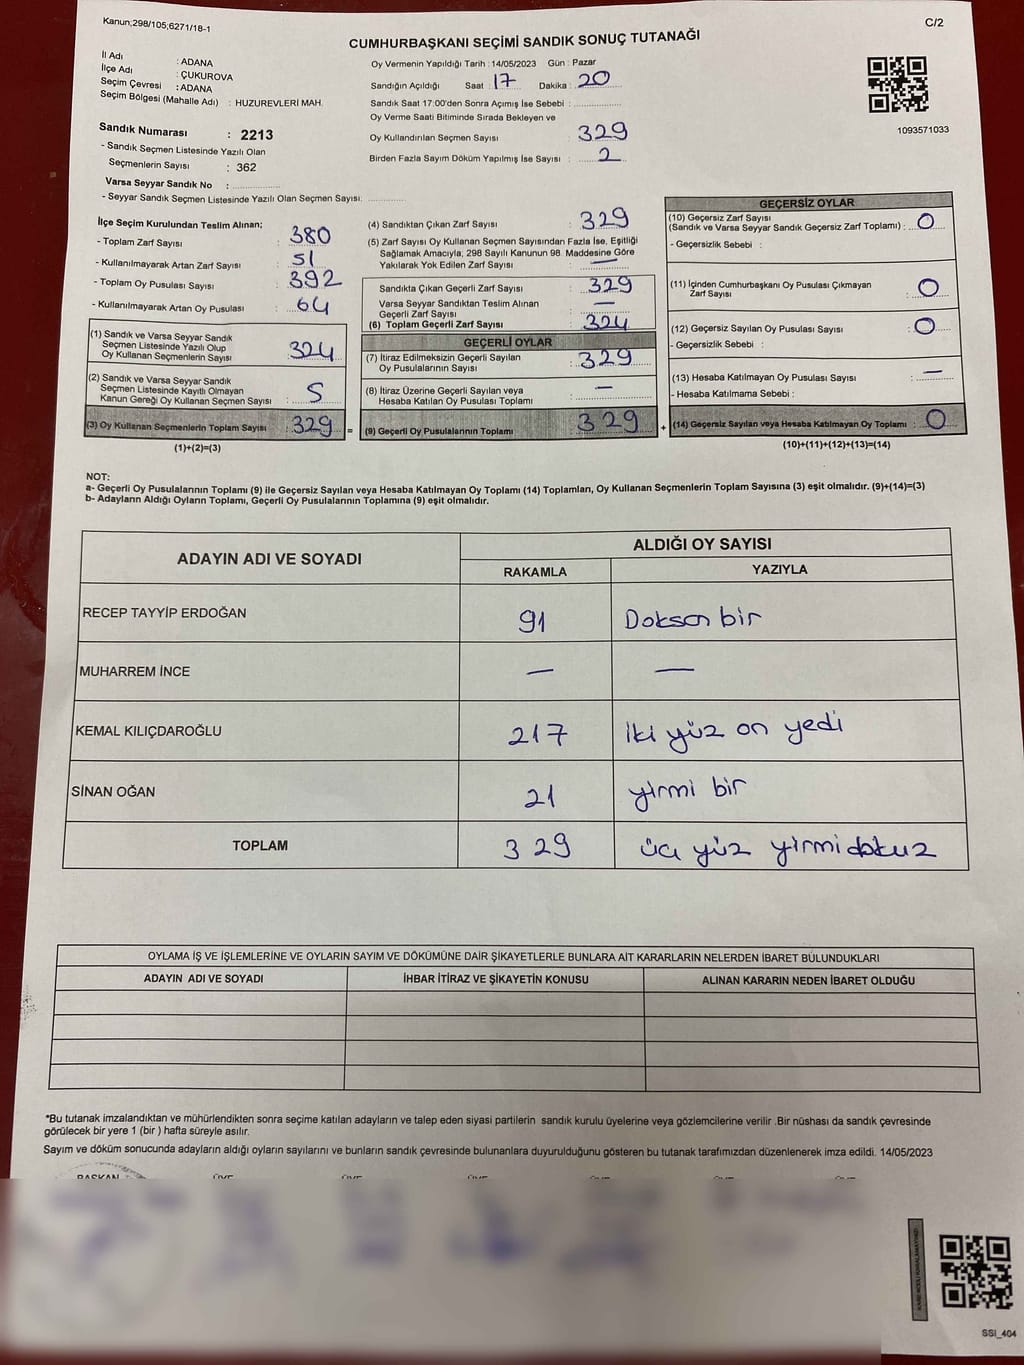 Kanun;298/105;6271/18-1
C/2
CUMHURBAŞKANI SEÇİMİ SANDIK SONUÇ TUTANAĞI
İl Adı : ADANA
İlçe Adı : ÇUKUROVA
Seçim Çevresi : ADANA
Seçim Bölgesi (Mahalle Adı) : HUZUREVLERİ MAH.
Sandık Numarası : 2213
- Sandık Seçmen Listesinde Yazılı Olan
Seçmenlerin Sayısı : 362
Varsa Seyyar Sandık No :
- Seyyar Sandık Seçmen Listesinde Yazılı Olan Seçmen Sayısı:
Oy Vermenin Yapıldığı Tarih : 14/05/2023 Gün : Pazar
Sandığın Açıldığı Saat : 17 Dakika : 20
Sandık Saat 17:00'den Sonra Açımış İse Sebebi :
Oy Verme Saati Bitiminde Sırada Bekleyen ve
Oy Kullandırılan Seçmen Sayısı : 329
Birden Fazla Sayım Döküm Yapılmış İse Sayısı : 2
1093571033
İlçe Seçim Kurulundan Teslim Alınan;
- Toplam Zarf Sayısı : 380
- Kullanılmayarak Artan Zarf Sayısı : 51
- Toplam Oy Pusulası Sayısı : 392
- Kullanılmayarak Artan Oy Pusulası : 64
(1) Sandık ve Varsa Seyyar Sandık
Seçmen Listesinde Yazılı Olup
Oy Kullanan Seçmenlerin Sayısı : 324
(2) Sandık ve Varsa Seyyar Sandık
Seçmen Listesinde Kayıtlı Olmayan
Kanun Gereği Oy Kullanan Seçmen Sayısı : 5
(3) Oy Kullanan Seçmenlerin Toplam Sayısı : 329 =
(1)+(2)=(3)
(4) Sandıktan Çıkan Zarf Sayısı : 329
(5) Zarf Sayısı Oy Kullanan Seçmen Sayısından Fazla İse, Eşitliği
Sağlamak Amacıyla; 298 Sayılı Kanunun 98. Maddesine Göre
Yakılarak Yok Edilen Zarf Sayısı : —
Sandıkta Çıkan Geçerli Zarf Sayısı : 329
Varsa Seyyar Sandıktan Teslim Alınan
Geçerli Zarf Sayısı : —
(6) Toplam Geçerli Zarf Sayısı : 324
GEÇERLİ OYLAR
(7) İtiraz Edilmeksizin Geçerli Sayılan
Oy Pusulalarının Sayısı : 329
(8) İtiraz Üzerine Geçerli Sayılan veya
Hesaba Katılan Oy Pusulası Toplamı : —
(9) Geçerli Oy Pusulalarının Toplamı : 329 +
GEÇERSİZ OYLAR
(10) Geçersiz Zarf Sayısı
(Sandık ve Varsa Seyyar Sandık Geçersiz Zarf Toplamı) : 0
- Geçersizlik Sebebi :
(11) İçinden Cumhurbaşkanı Oy Pusulası Çıkmayan
Zarf Sayısı : 0
(12) Geçersiz Sayılan Oy Pusulası Sayısı : 0
- Geçersizlik Sebebi :
(13) Hesaba Katılmayan Oy Pusulası Sayısı : —
- Hesaba Katılmama Sebebi :
(14) Geçersiz Sayılan veya Hesaba Katılmayan Oy Toplamı : 0
(10)+(11)+(12)+(13)=(14)
NOT:
a- Geçerli Oy Pusulalarının Toplamı (9) ile Geçersiz Sayılan veya Hesaba Katılmayan Oy Toplamı (14) Toplamları, Oy Kullanan Seçmenlerin Toplam Sayısına (3) eşit olmalıdır. (9)+(14)=(3)
b- Adayların Aldığı Oyların Toplamı, Geçerli Oy Pusulalarının Toplamına (9) eşit olmalıdır.
ADAYIN ADI VE SOYADI
ALDIĞI OY SAYISI
RAKAMLA YAZIYLA
RECEP TAYYİP ERDOĞAN 91 Doksan bir
MUHARREM İNCE — —
KEMAL KILIÇDAROĞLU 217 iki yüz on yedi
SİNAN OĞAN 21 yirmi bir
TOPLAM 329 üç yüz yirmi dokuz
OYLAMA İŞ VE İŞLEMLERİNE VE OYLARIN SAYIM VE DÖKÜMÜNE DAİR ŞİKAYETLERLE BUNLARA AİT KARARLARIN NELERDEN İBARET BULUNDUKLARI
ADAYIN ADI VE SOYADI İHBAR İTİRAZ VE ŞİKAYETİN KONUSU ALINAN KARARIN NEDEN İBARET OLDUĞU
*Bu tutanak imzalandıktan ve mühürlendikten sonra seçime katılan adayların ve talep eden siyasi partilerin sandık kurulu üyelerine veya gözlemcilerine verilir .Bir nüshası da sandık çevresinde
görülecek bir yere 1 (bir ) hafta süreyle asılır.
Sayım ve döküm sonucunda adayların aldığı oyların sayılarını ve bunların sandık çevresinde bulunanlara duyurulduğunu gösteren bu tutanak tarafımızdan düzenlenerek imza edildi. 14/05/2023
BAŞKAN ÜYE ÜYE ÜYE ÜYE ÜYE ÜYE
SSI_404